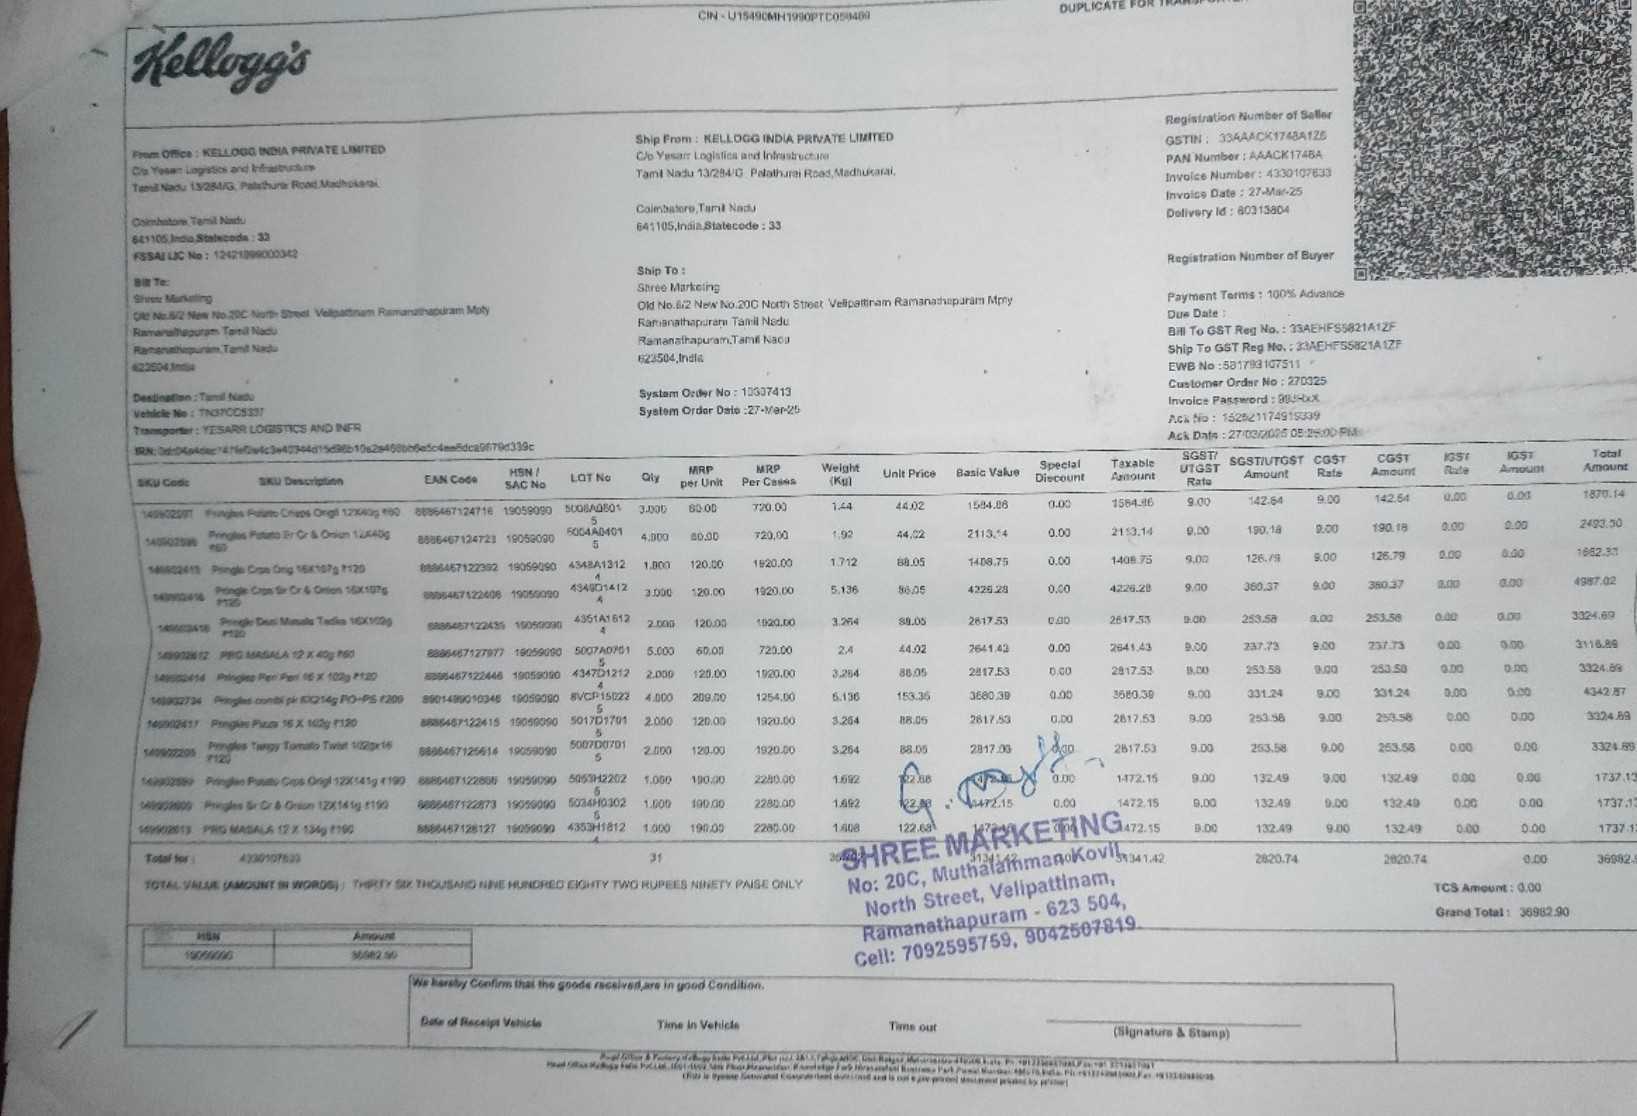 CIN - U15490MH1990PTC059469
DUPLICATE FOR
Kellogg's
From Office : KELLOGG INDIA PRIVATE LIMITED
C/o Yesarr Logistics and Infrastructure
Tamil Nadu 13/284/G, Palathurai Road,Madhukarai,
Coimbatore,Tamil Nadu
641105,India,Statecode : 33
FSSAI LIC No : 12421999000342
Bill To:
Shree Marketing
Old No.6/2 New No.20C North Street Velipattinam Ramanathapuram Mpty
Ramanathapuram Tamil Nadu
Ramanathapuram,Tamil Nadu
623504,India
Destination : Tamil Nadu
Vehicle No : TN37CC5337
Transporter : YESARR LOGISTICS AND INFR
Ship From : KELLOGG INDIA PRIVATE LIMITED
C/o Yesarr Logistics and Infrastructure
Tamil Nadu 13/284/G Palathurai Road,Madhukarai,
Coimbatore,Tamil Nadu
641105,India,Statecode : 33
Ship To :
Shree Marketing
Old No.6/2 New No.20C North Street Velipattinam Ramanathapuram Mpty
Ramanathapuram Tamil Nadu
Ramanathapuram,Tamil Nadu
623504,India
System Order No : 10307413
System Order Date :27-Mar-25
Registration Number of Seller
GSTIN : 33AAACK1748A1Z6
PAN Number : AAACK1748A
Invoice Number : 4330107633
Invoice Date : 27-Mar-25
Delivery Id : 60313804
Registration Number of Buyer
Payment Terms : 100% Advance
Due Date :
Bill To GST Reg No. : 33AEHFS5821A1ZF
Ship To GST Reg No. : 33AEHFS5821A1ZF
EWB No :581793107511
Customer Order No : 270325
Invoice Password :
Ack No : 152521174919339
Ack Date : 27/03/2025 05:29:00 PM
IRN:
SKU Code SKU Description EAN Code HSN / SAC No LOT No Qty MRP per Unit MRP Per Cases Weight (Kg) Unit Price Basic Value Special Discount Taxable Amount SGST/ UTGST Rate SGST/UTGST Amount CGST Rate CGST Amount IGST Rate IGST Amount Total Amount
149902597 Pringles Potato Crisps Origil 12X40g ₹60 8886467124716 19059090 5006A0601 5 3.000 60.00 720.00 1.44 44.02 1584.86 0.00 1584.86 9.00 142.64 9.00 142.64 0.00 0.00 1870.14
149902596 Pringles Potato Sr Cr & Onion 12X40g ₹60 8886467124723 19059090 5004A0401 5 4.000 60.00 720.00 1.92 44.02 2113.14 0.00 2113.14 9.00 190.18 9.00 190.18 0.00 0.00 2493.50
149902413 Pringle Crps Orig 16X107g ₹120 8886467122392 19059090 4348A1312 4 1.000 120.00 1920.00 1.712 88.05 1408.75 0.00 1408.75 9.00 126.79 9.00 126.79 0.00 0.00 1662.33
149902416 Pringle Crps Sr Cr & Onion 16X107g ₹120 8886467122408 19059090 4349D1412 4 3.000 120.00 1920.00 5.136 88.05 4226.28 0.00 4226.28 9.00 380.37 9.00 380.37 0.00 0.00 4987.02
149902418 Pringle Desi Masala Tadka 16X102g ₹120 8886467122439 19059090 4351A1612 4 2.000 120.00 1920.00 3.264 88.05 2817.53 0.00 2817.53 9.00 253.58 9.00 253.58 0.00 0.00 3324.69
149902612 PRG MASALA 12 X 40g ₹60 8886467127977 19059090 5007A0701 5 5.000 60.00 720.00 2.4 44.02 2641.43 0.00 2641.43 9.00 237.73 9.00 237.73 0.00 0.00 3116.89
149902414 Pringles Peri Peri 16 X 102g ₹120 8886467122446 19059090 4347D1212 4 2.000 120.00 1920.00 3.264 88.05 2817.53 0.00 2817.53 9.00 253.58 9.00 253.58 0.00 0.00 3324.69
149902734 Pringles combi pk 6X214g PO+PS ₹209 8901499010346 19059090 8VCP15022 5 4.000 209.00 1254.00 5.136 153.35 3680.39 0.00 3680.39 9.00 331.24 9.00 331.24 0.00 0.00 4342.87
149902417 Pringles Pizza 16 X 102g ₹120 8886467122415 19059090 5017D1701 5 2.000 120.00 1920.00 3.264 88.05 2817.53 0.00 2817.53 9.00 253.58 9.00 253.58 0.00 0.00 3324.69
149902205 Pringles Tangy Tomato Twist 102gx16 ₹120 8886467125614 19059090 5007D0701 5 2.000 120.00 1920.00 3.264 88.05 2817.53 0.00 2817.53 9.00 253.58 9.00 253.58 0.00 0.00 3324.69
Pringles Potato Crps Origl 12X141g ₹190 8886467122866 19059090 5053H2202 5 1.000 190.00 2280.00 1.692 122.68 1472.15 0.00 1472.15 9.00 132.49 9.00 132.49 0.00 0.00 1737.13
Pringles Sr Cr & Onion 12X141g ₹190 8886467122873 19059090 5034H0302 5 1.000 190.00 2280.00 1.692 122.68 1472.15 0.00 1472.15 9.00 132.49 9.00 132.49 0.00 0.00 1737.1
149902613 PRG MASALA 12 X 134g ₹190 8886467128127 19059090 4353H1812 4 1.000 190.00 2280.00 1.608 122.68 1472.15 0.00 1472.15 9.00 132.49 9.00 132.49 0.00 0.00 1737.1
Total for : 4330107633 31 31341.42 0.00 31341.42 2820.74 2820.74 0.00 36982.
TOTAL VALUE (AMOUNT IN WORDS) : THIRTY SIX THOUSAND NINE HUNDRED EIGHTY TWO RUPEES NINETY PAISE ONLY
TCS Amount : 0.00
Grand Total : 36982.90
SHREE MARKETING
No: 20C, Muthalamman Kovil,
North Street, Velipattinam,
Ramanathapuram - 623 504,
Cell: 7092595759, 9042507819.
HSN Amount
19059090 36982.90
We hereby Confirm that the goods received,are in good Condition.
Date of Receipt Vehicle Time in Vehicle Time out (Signature & Stamp)